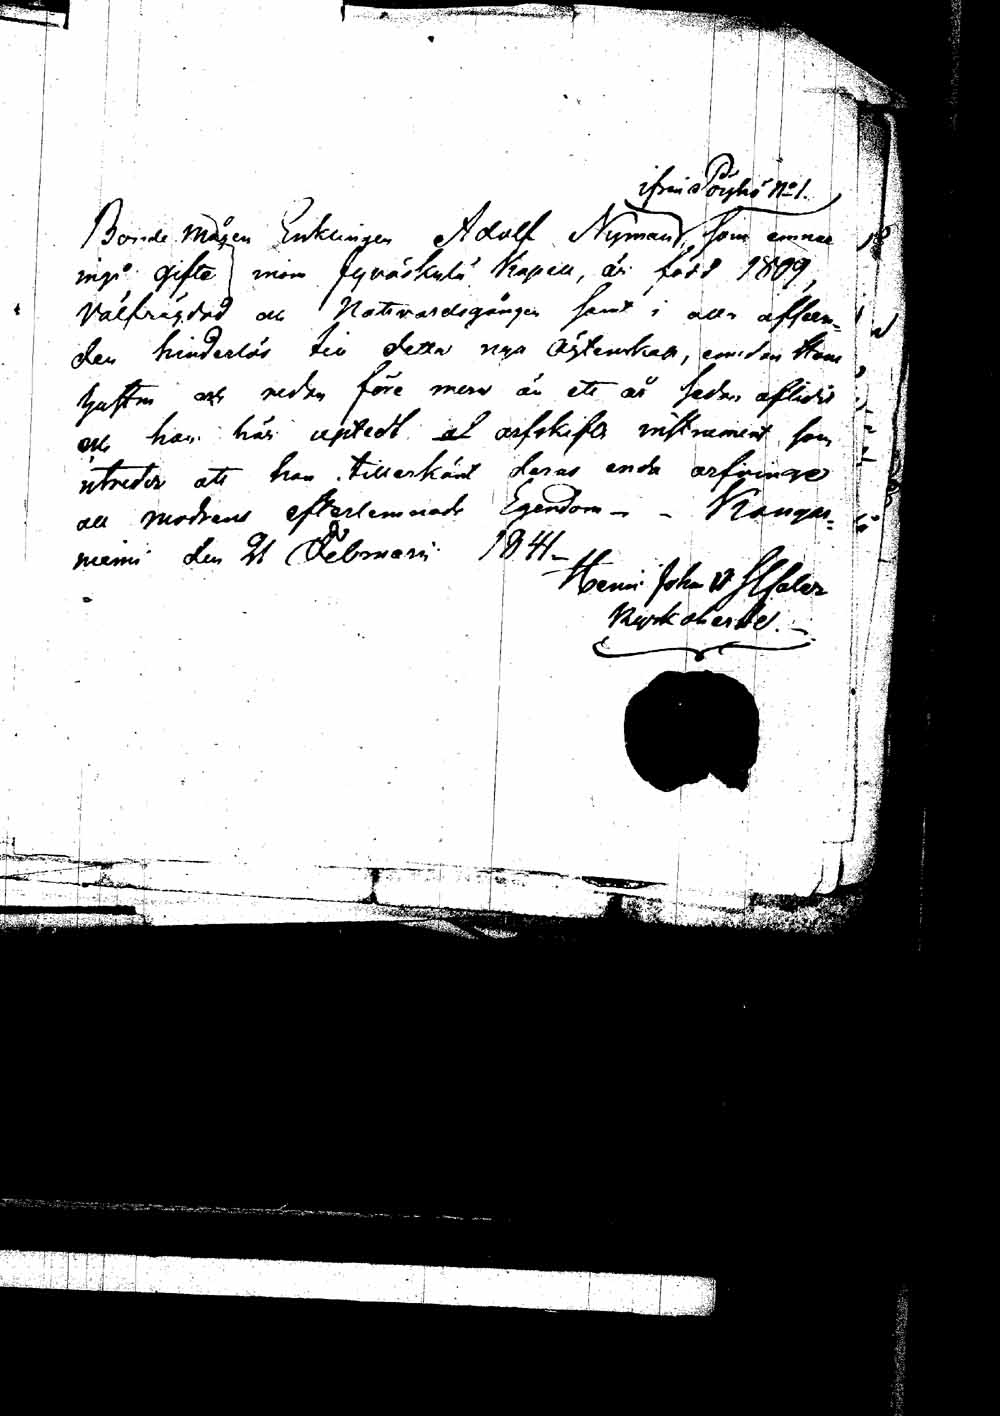 ifrån Pöyhö No 1.
Bonde mågen Enklingen Adolf Nyman, som ernar
ingå gifte inom Jyväskylä Kapell, är född 1809,
Välfrägdad och Nattvardsgången samt i allt afseen=
den hinderlös till detta nya Äktenskap, emedan
hustru re'n redan före mera än ett år sedan aflidit
och han här uptedt et arfskifts instrument som
utreder att han tillerkänt deras enda arfvinge
all modrens efterlemnade Egendom - - Kangas=
niemi den 21 Februari 1841 -
Henric Johan
Kyrkoherde.